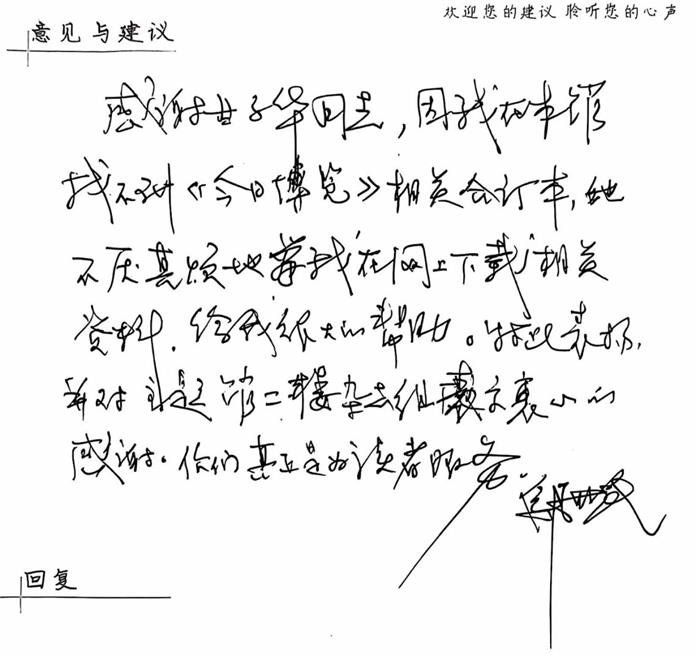 欢迎您的建议 聆听您的心声
意见与建议
感谢甘子华同志，因我在本馆
找不到《今日博览》相关合订本，她
不厌其烦地帮我在网上下载了相关
资料，给我很大的帮助。特此表扬，
并对主题馆二楼杂志组表示衷心的
感谢。你们真正是为读者服务
回复